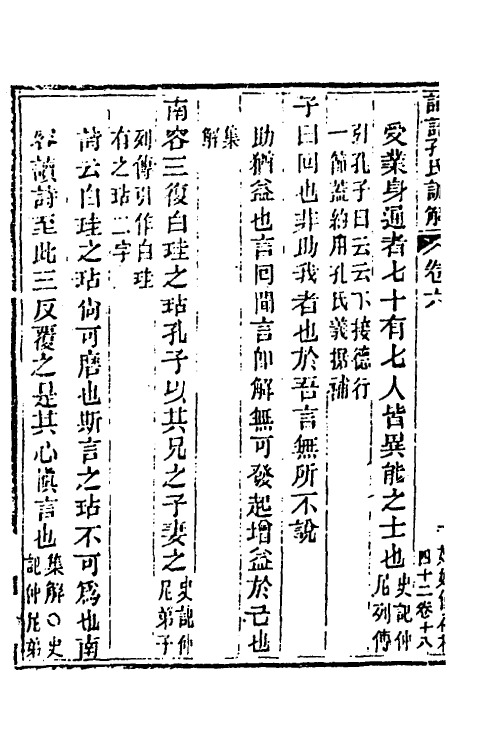 論語孔氏訓解 卷六
四十二卷十八
受業身通者七十有七人皆異能之士也史記仲尼列傳
引孔子曰云云下接德行
一節蓋約用孔氏義據補
子曰回也非助我者也於吾言無所不說
助猶益也言回聞言即解無可發起增益於己也
集
解
南容三復白珪之玷孔子以其兄之子妻之史記仲尼弟子
列傳引作白珪
有之玷二字
詩云白珪之玷尙可磨也斯言之玷不可爲也南
容讀詩至此三反覆之是其心愼言也集解〇史記仲尼弟